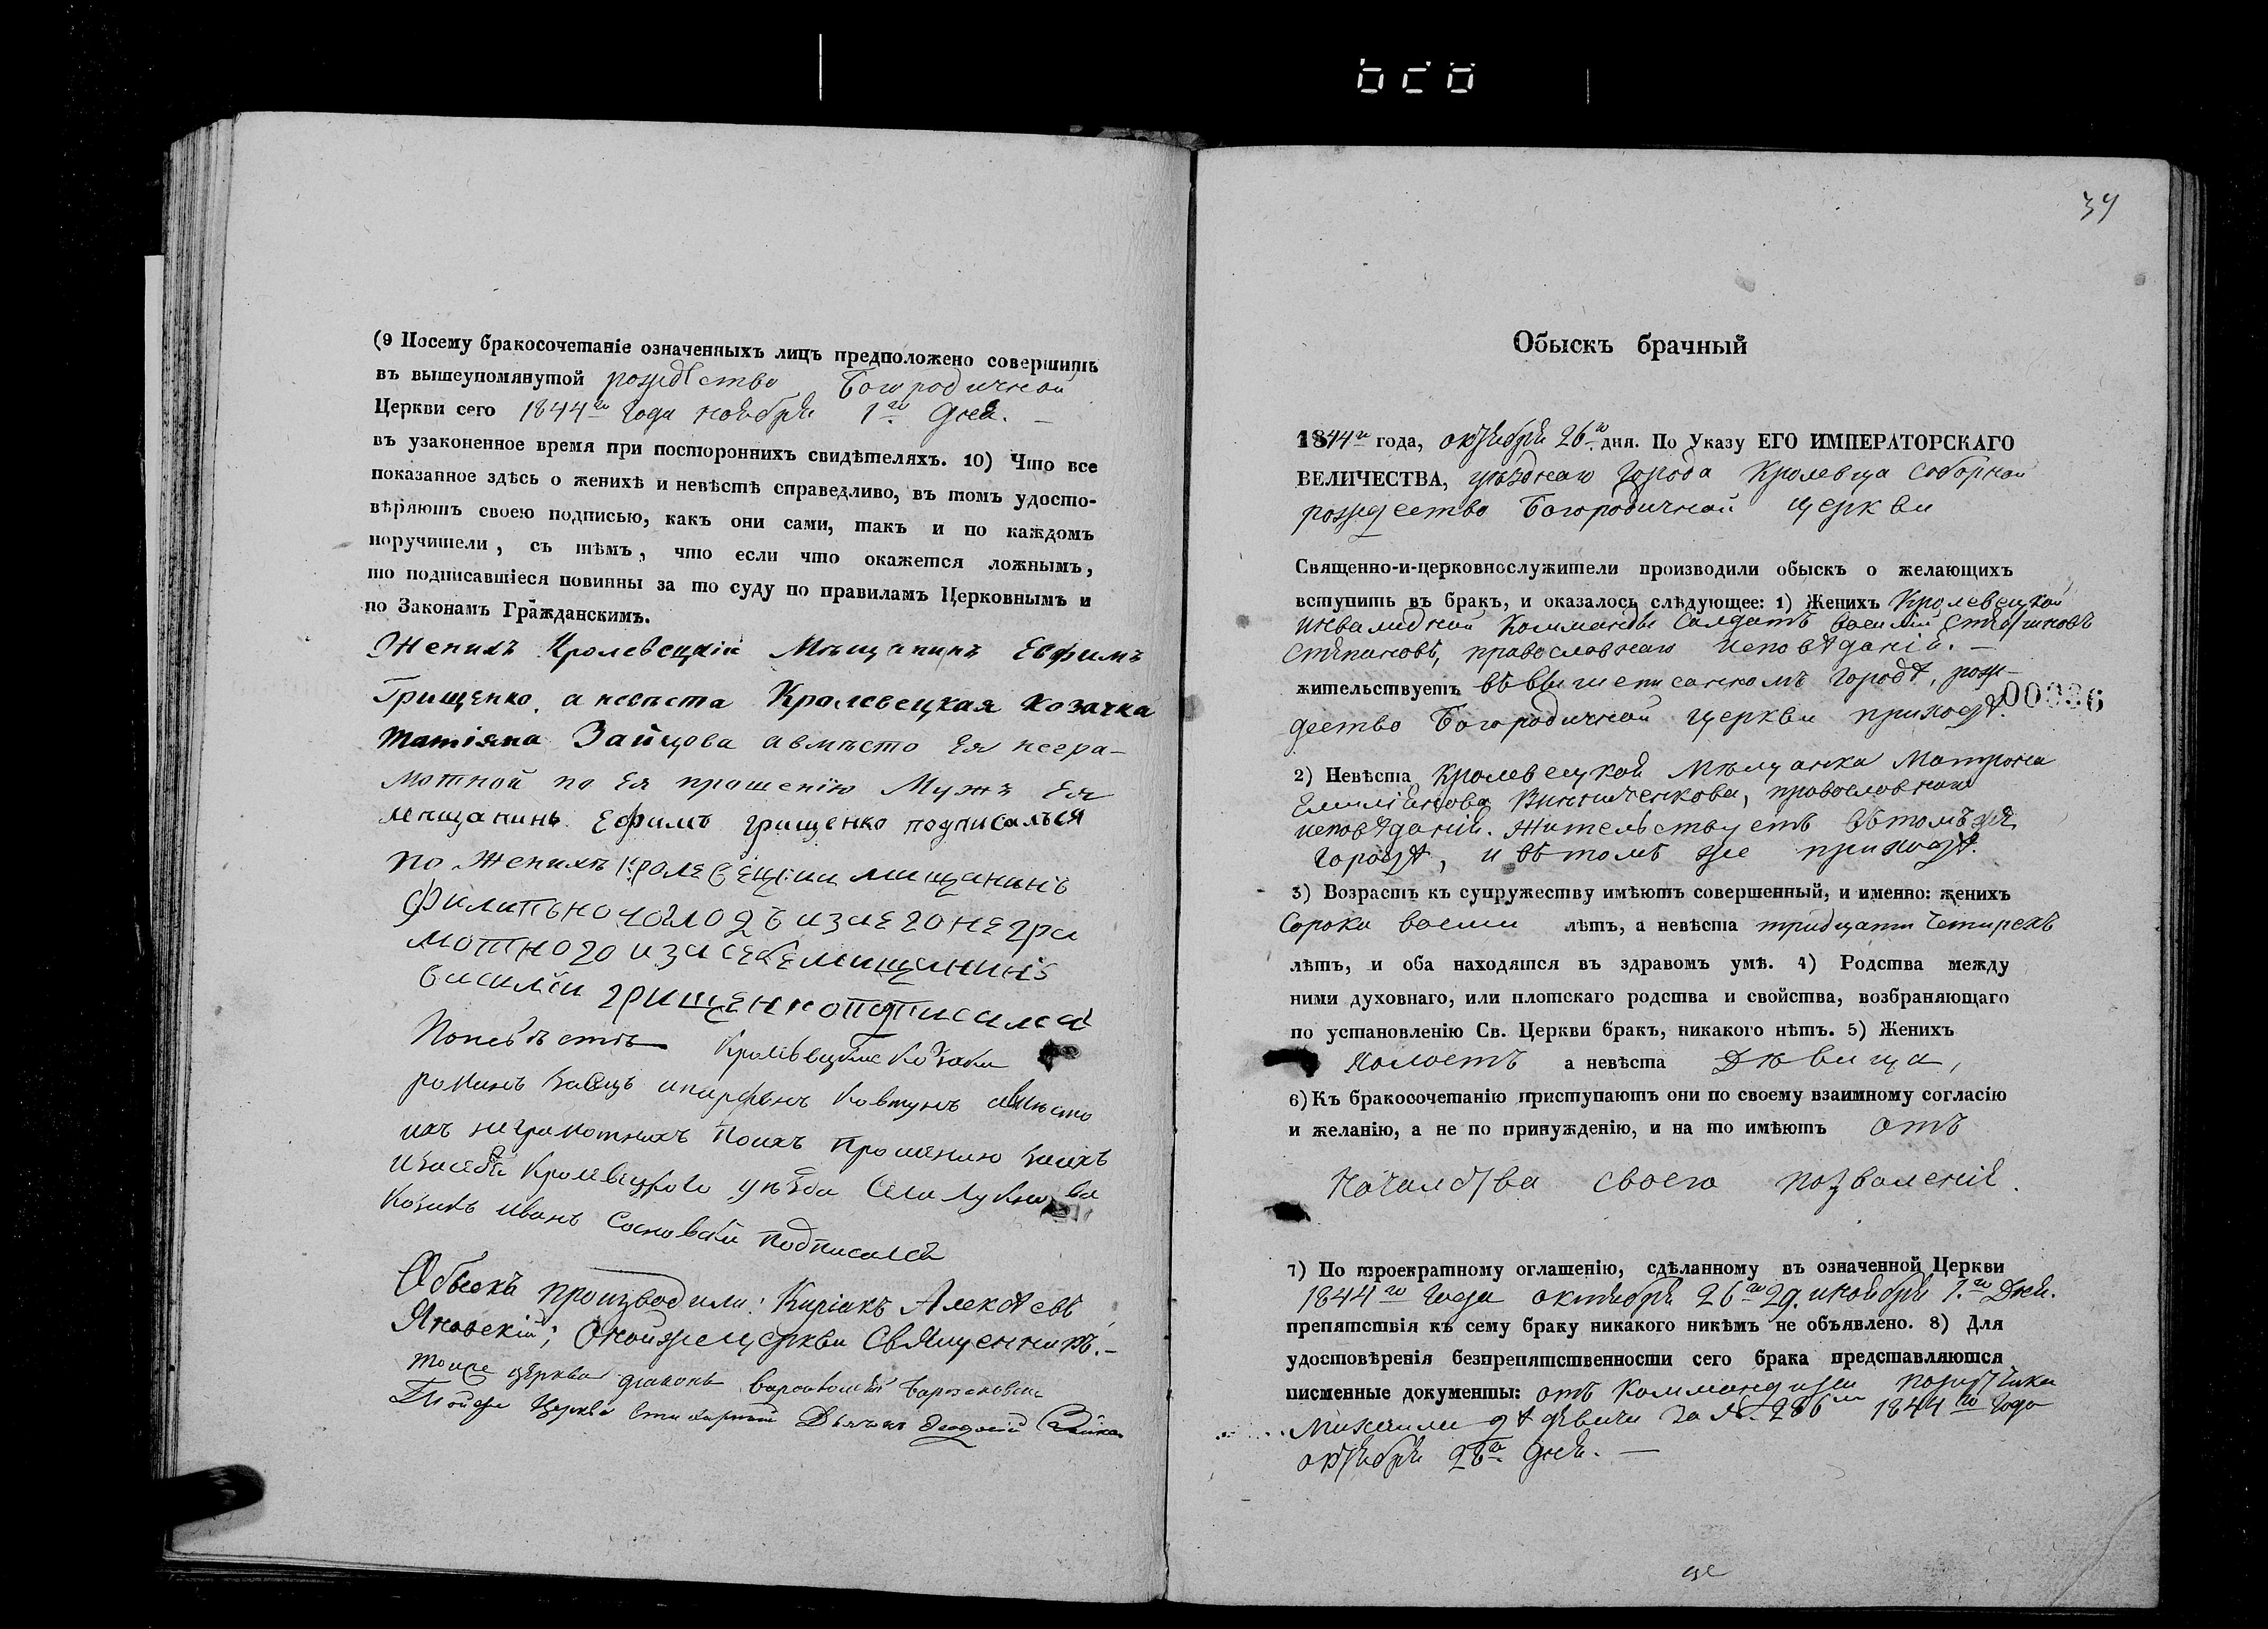 (9 Посему бракосочетаніе означенныхъ лицъ предположено совершить
въ вышеупомянутой рождество Богородичной
Церкви сего 1844го года ноября 1го дня. —
въ узаконенное время при постороннихъ свидѣтеляхъ. 10) Что все
показанное здѣсь о женихѣ и невѣстѣ справедливо, въ томъ удосто-
вѣряютъ своею подписью, какъ они сами, такъ и по каждомъ
поручители, съ тѣмъ, что если что окажется ложнымъ,
то подписавшіеся повинны за то суду по правиламъ Церковнымъ и
по Законамъ Гражданскимъ.
Женихъ Кролевецкій Мѣщанинъ Евфимъ
Грищенко, а невѣста Кролевецкая козачка
Татіяна Зайцова авмѣсто Ея негра-
мотной по Ея прошенію Мужъ Ея
мещанинъ Ефимъ грищенко подписалься
по женихѣ кролевецкии мищанинъ
филипъ изаего негра
мотного изасебе мищанинъ
василии грищенко
Поневѣстѣ Кролевецкие козаки
романъ Заецъ ипарфенъ Ковтунъ авмѣсто
ихъ неграмотнихъ Поихъ Прошению Заихъ
изасебя Кролевецкого уѣзда Села
Козакъ иванъ Сосновский подписался
Обыскъ производили: Киріакъ Алексѣевъ
Яновскій; Онойже церкви Священникъ. —
тоиже церкви диаконъ
Тойже Церкви Дьячокъ Зайка
34
Обыскъ брачный
1844го года, октября 26го дня. По Указу ЕГО ИМПЕРАТОРСКАГО
ВЕЛИЧЕСТВА, уѣзднаго города Кролевца Соборной
рождество Богородичной церкви
Священно-и-церковнослужители производили обыскъ о желающихъ
вступить въ бракъ, и оказалось слѣдующее: 1) Женихъ Кролевецкой
инвалидной Комманды Салдатъ василий
Степановъ, православнаго исповѣданія. —
жительствуетъ въвышеписанномъ городѣ, рож-
дество Богородичной церкви приходѣ.
00036
2) Невѣста Кролевецкой Мѣщанка Матрона
Емиліанова Винниченкова, православнаго
исповѣданія. Жительствуетъ вътомъ же
городѣ, и вътомъ же приходѣ.
3) Возрастъ къ супружеству имѣютъ совершенный, и именно: женихъ
Сорока восми лѣтъ, а невѣста тридцати четирехъ
лѣтъ, и оба находятся въ здравомъ умѣ. 4) Родства между
ними духовнаго, или плотскаго родства и свойства, возбраняющаго
по установленію Св. Церкви бракъ, никакого нѣтъ. 5) Женихъ
холостъ а невѣста Дѣвица,
6) Къ бракосочетанію приступаютъ они по своему взаимному согласію
и желанію, а не по принужденію, и на то имѣютъ отъ
Началства своего позволеніе.
7) По троекратному оглашенію, сдѣланному въ означенной Церкви
1844го года октября 26го 29. иноября 1.го Дня.
препятствія къ сему браку никакого никѣмъ не объявлено. 8) Для
удостовѣренія безпрепятственности сего брака представляются
писменные документы: отъ Коммандира поручика
за №. 286м 1844го года
октября 26го дня. —